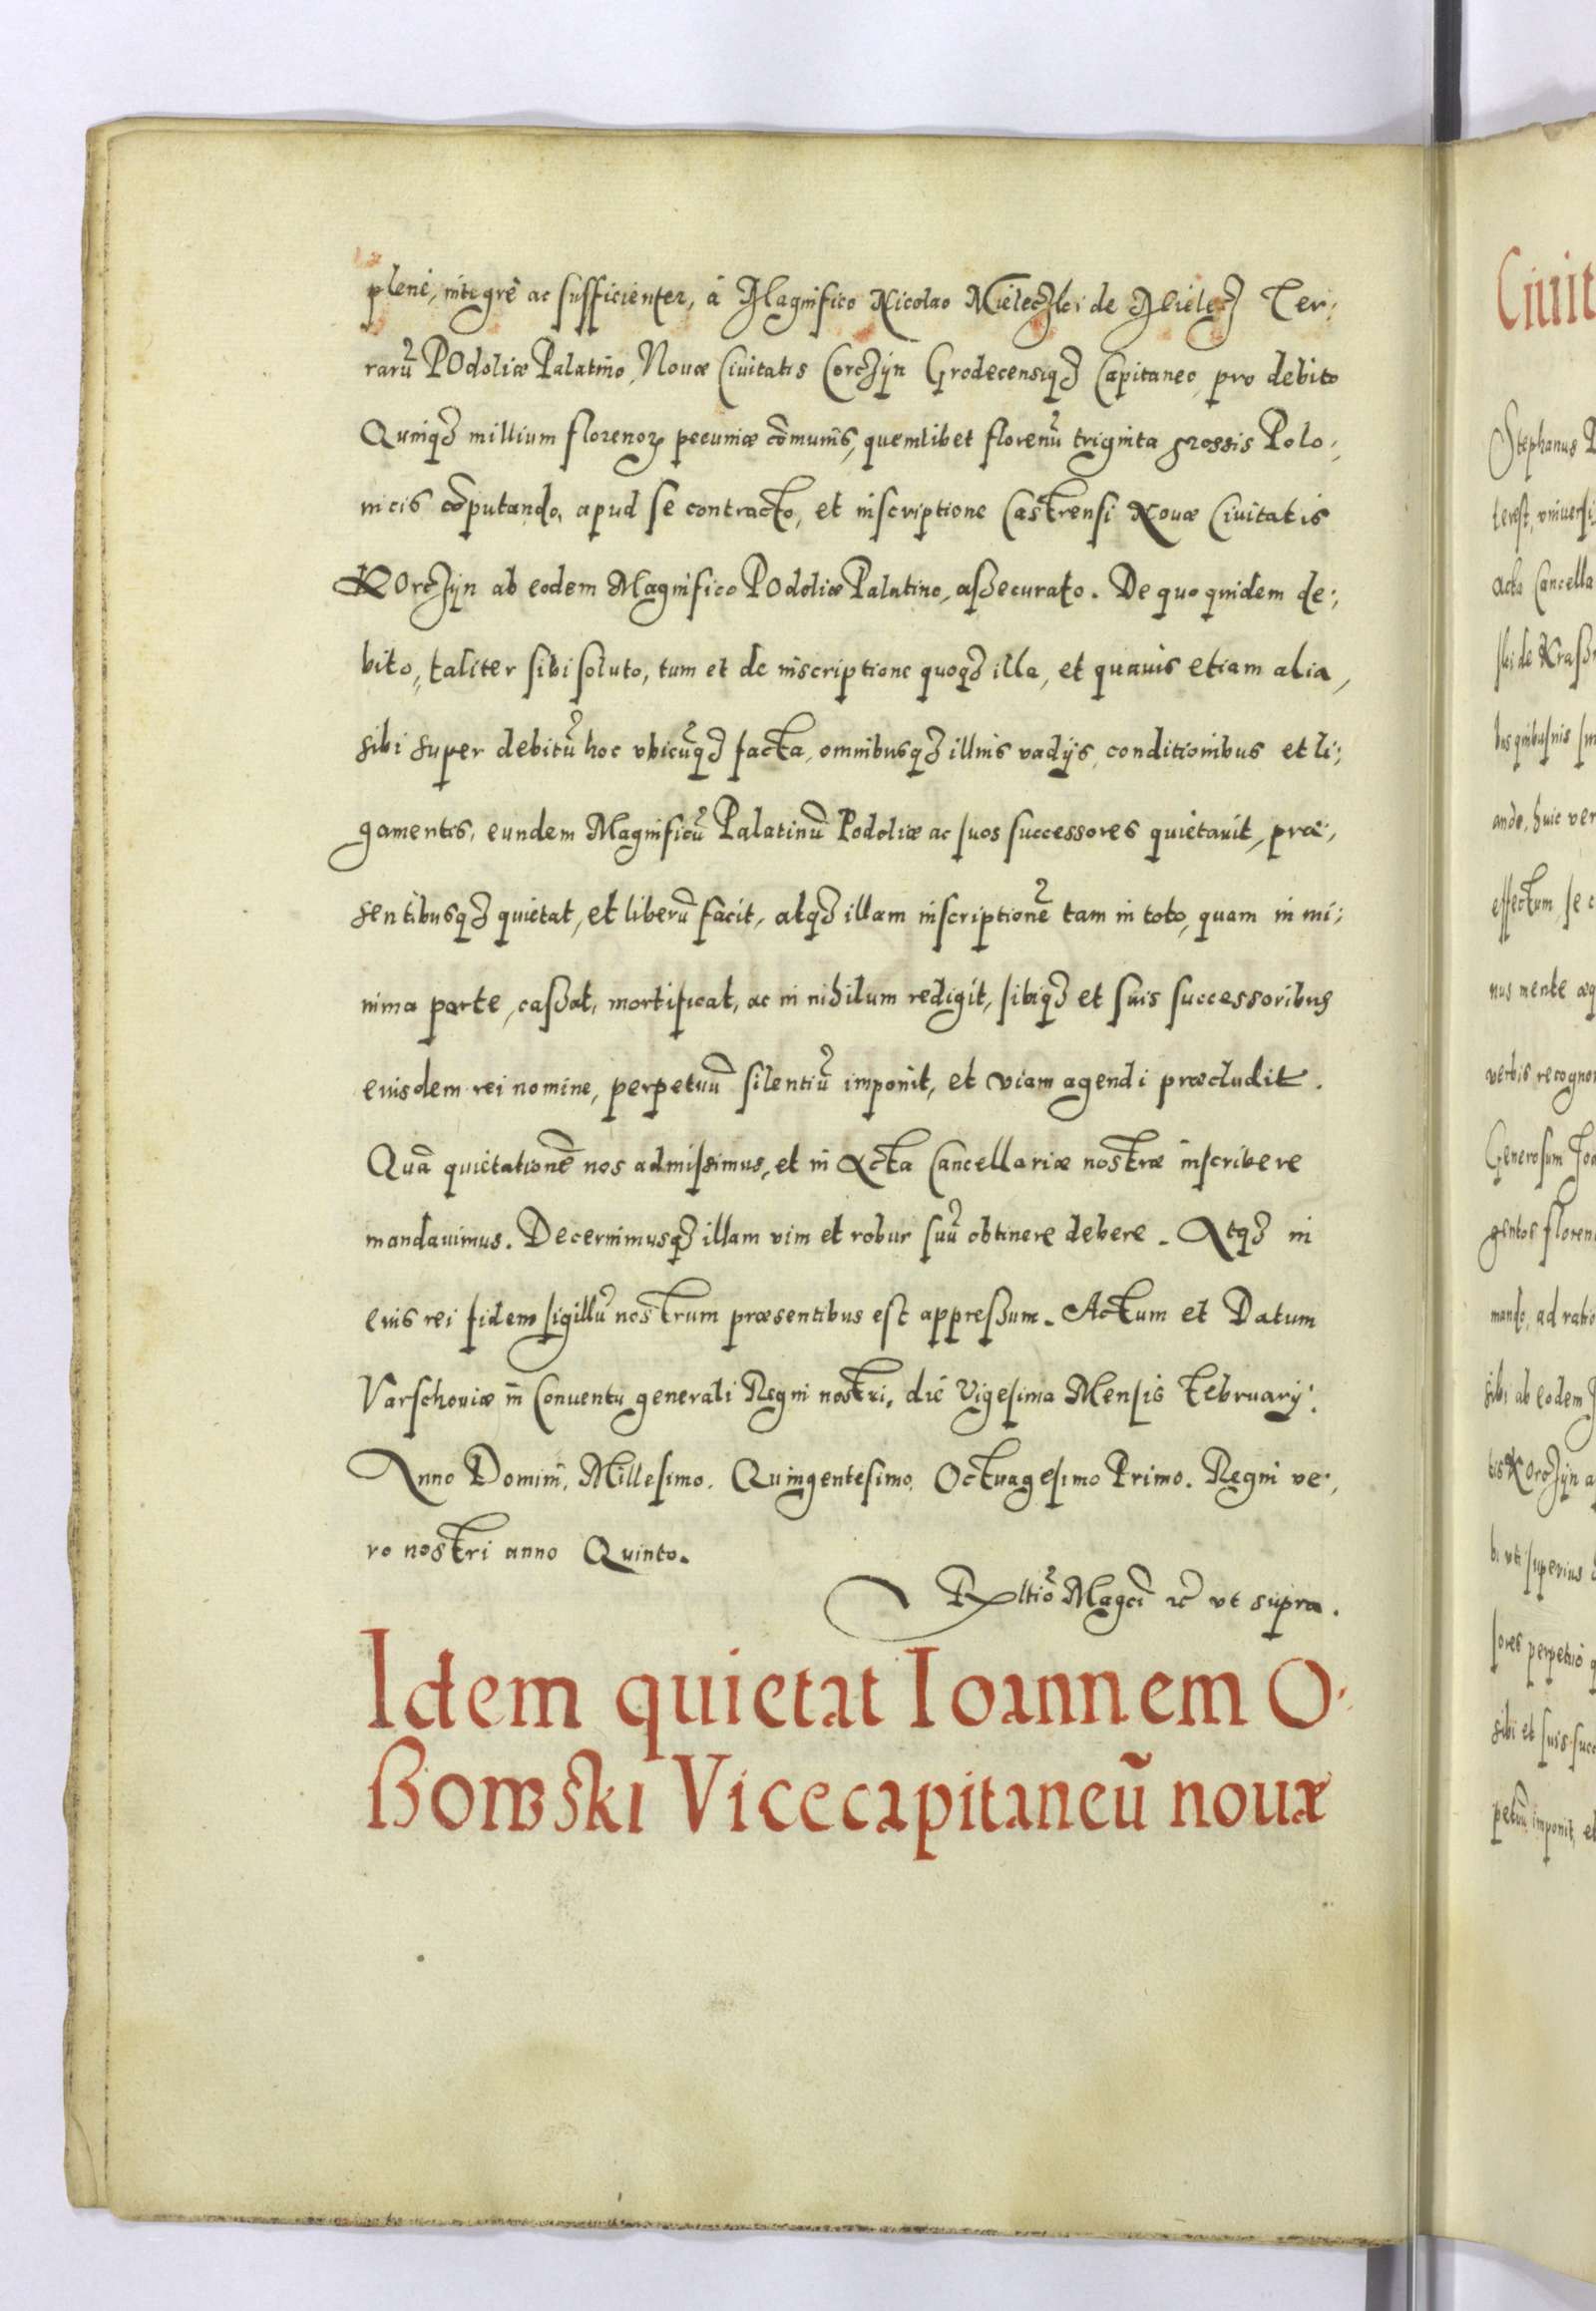 plenè, integrè ac sufficienter, à Magnifico Nicolao Mieleczki de Mielecz Ter:
rarũ Podoliæ Palatino, Nouæ Ciuitatis Corczÿn Grodecensiqȝ Capitaneo, pro debito
Quinqȝ millium florenoꝝ pecuniæ cõmunis, quemlibet florenũ triginta grossis Polo:
nicis cõputando, apud se contracto, et inscriptione Castrensi Nouæ Ciuitatis
Korczÿn ab eodem Magnifico Podoliæ Palatino, aßecurato. De quo quidem de:
bito, taliter sibi soluto, tum et de inscriptione quoqȝ illa, et quauis etiam alia,
sibi super debitũ hoc vbicũqȝ facta, omnibusqȝ illius vadijs, conditionibus et li:
gamentis, eundem Magnificũ Palatinũ Podoliæ ac suos successores quietauit, præ:
sentibusqȝ quietat, et liberũ facit, atqȝ illam inscriptionẽ tam in toto, quam in mi:
nima parte, caßat, mortificat, ac in nihilum redigit, sibiqȝ et suis successoribus
eiusdem rei nomine, perpetuũ silentiũ imponit, et viam agendi præcludit.
Quã quietationẽ nos admisimus, et in Acta Cancellariæ nostræ inscribere
mandauimus. Decernimusqȝ illam vim et robur suũ obtinere debere. Atqȝ in
eius rei fidem sigillũ nostrum præsentibus est appreßum. Actum et Datum
Varschouiæ in Conuentu generali Regni nostri, die Vigesima Mensis Februarij:
Anno Domini, Millesimo. Quingentesimo. Octuagesimo Primo. Regni ve:
ro nostri anno Quinto.
Rltiõ Magci ꝛc̃ vt supra.
Idem quietat Ioannem O:
ßowski Vicecapitaneũ nouæ
Ciuit
Stephanus
acta Cancella
ande, huic ver
effectum se c
nus mente æq
verbis recogno
Generosum Joa
gentos floren
mando, ad ratio
sibi ab eodem
tis Korczÿn a
bi vti superius
sores perpetuò q
sibi et suis succ
petuũ imponit, et